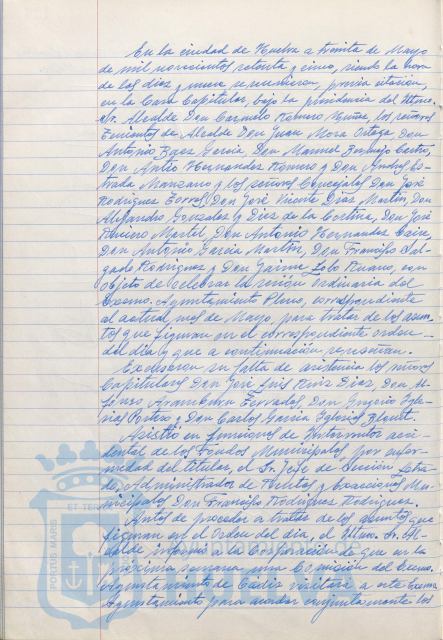 En la ciudad de Huelva a treinta de Mayo
de mil novecientos setenta y cinco, siendo la hora
de las diez y nueve se reunieron, previa citación,
en la Casa Capitular, bajo la presidencia del Iltmo.
Sr. Alcalde Don Carmelo Romero Núñez, los señores
Tenientes de Alcalde Don Juan Mora Ortega, Don
Antonio Baez García, Don Manuel Bermejo Castro,
Don Antonio Hernandez Romero y Don Andrés Es-
trada Manzano y los señores Concejales Don José
Rodriguez Torres, Don José Vicente Díaz Martín, Don
Alejandro Gonzalez y Diez de la Cortina, Don José
Martel, Don Antonio Hernandez
Don Antonio García Martín, Don Francisco Sal-
gado Rodriguez y Don Jaime Lobo Ruano, con
objeto de celebrar la sesión ordinaria del
Excmo. Ayuntamiento Pleno, correspondiente
al actual mes de Mayo, para tratar de los asun-
tos que figuran en el correspondiente orden
del día y que a continuación se reseñan.
Excusaron su falta de asistencia los señores
Capitulares Don José Luis Ruiz Díaz, Don
Aramburu Terrades, Don Gregorio Igle-
sias y Don Carlos García Iglesias
Asistió en funciones de Interventor acci-
dental de los Fondos Municipales por enfer-
medad del titular, el Sr. Jefe de Sección
Administrador de Rentas y Exacciones Mu-
nicipales Don Francisco Rodriguez Rodriguez.
Antes de proceder a tratar de los asuntos que
figuran en el Orden del día, el Iltmo. Sr. Al-
calde informa a la Corporación de que en la
próxima semana una Comisión del Excmo.
Ayuntamiento de Cádiz visitará a este Excmo.
Ayuntamiento para acordar conjuntamente los
PORTUS MARIS ET TERRAE
HUELVA